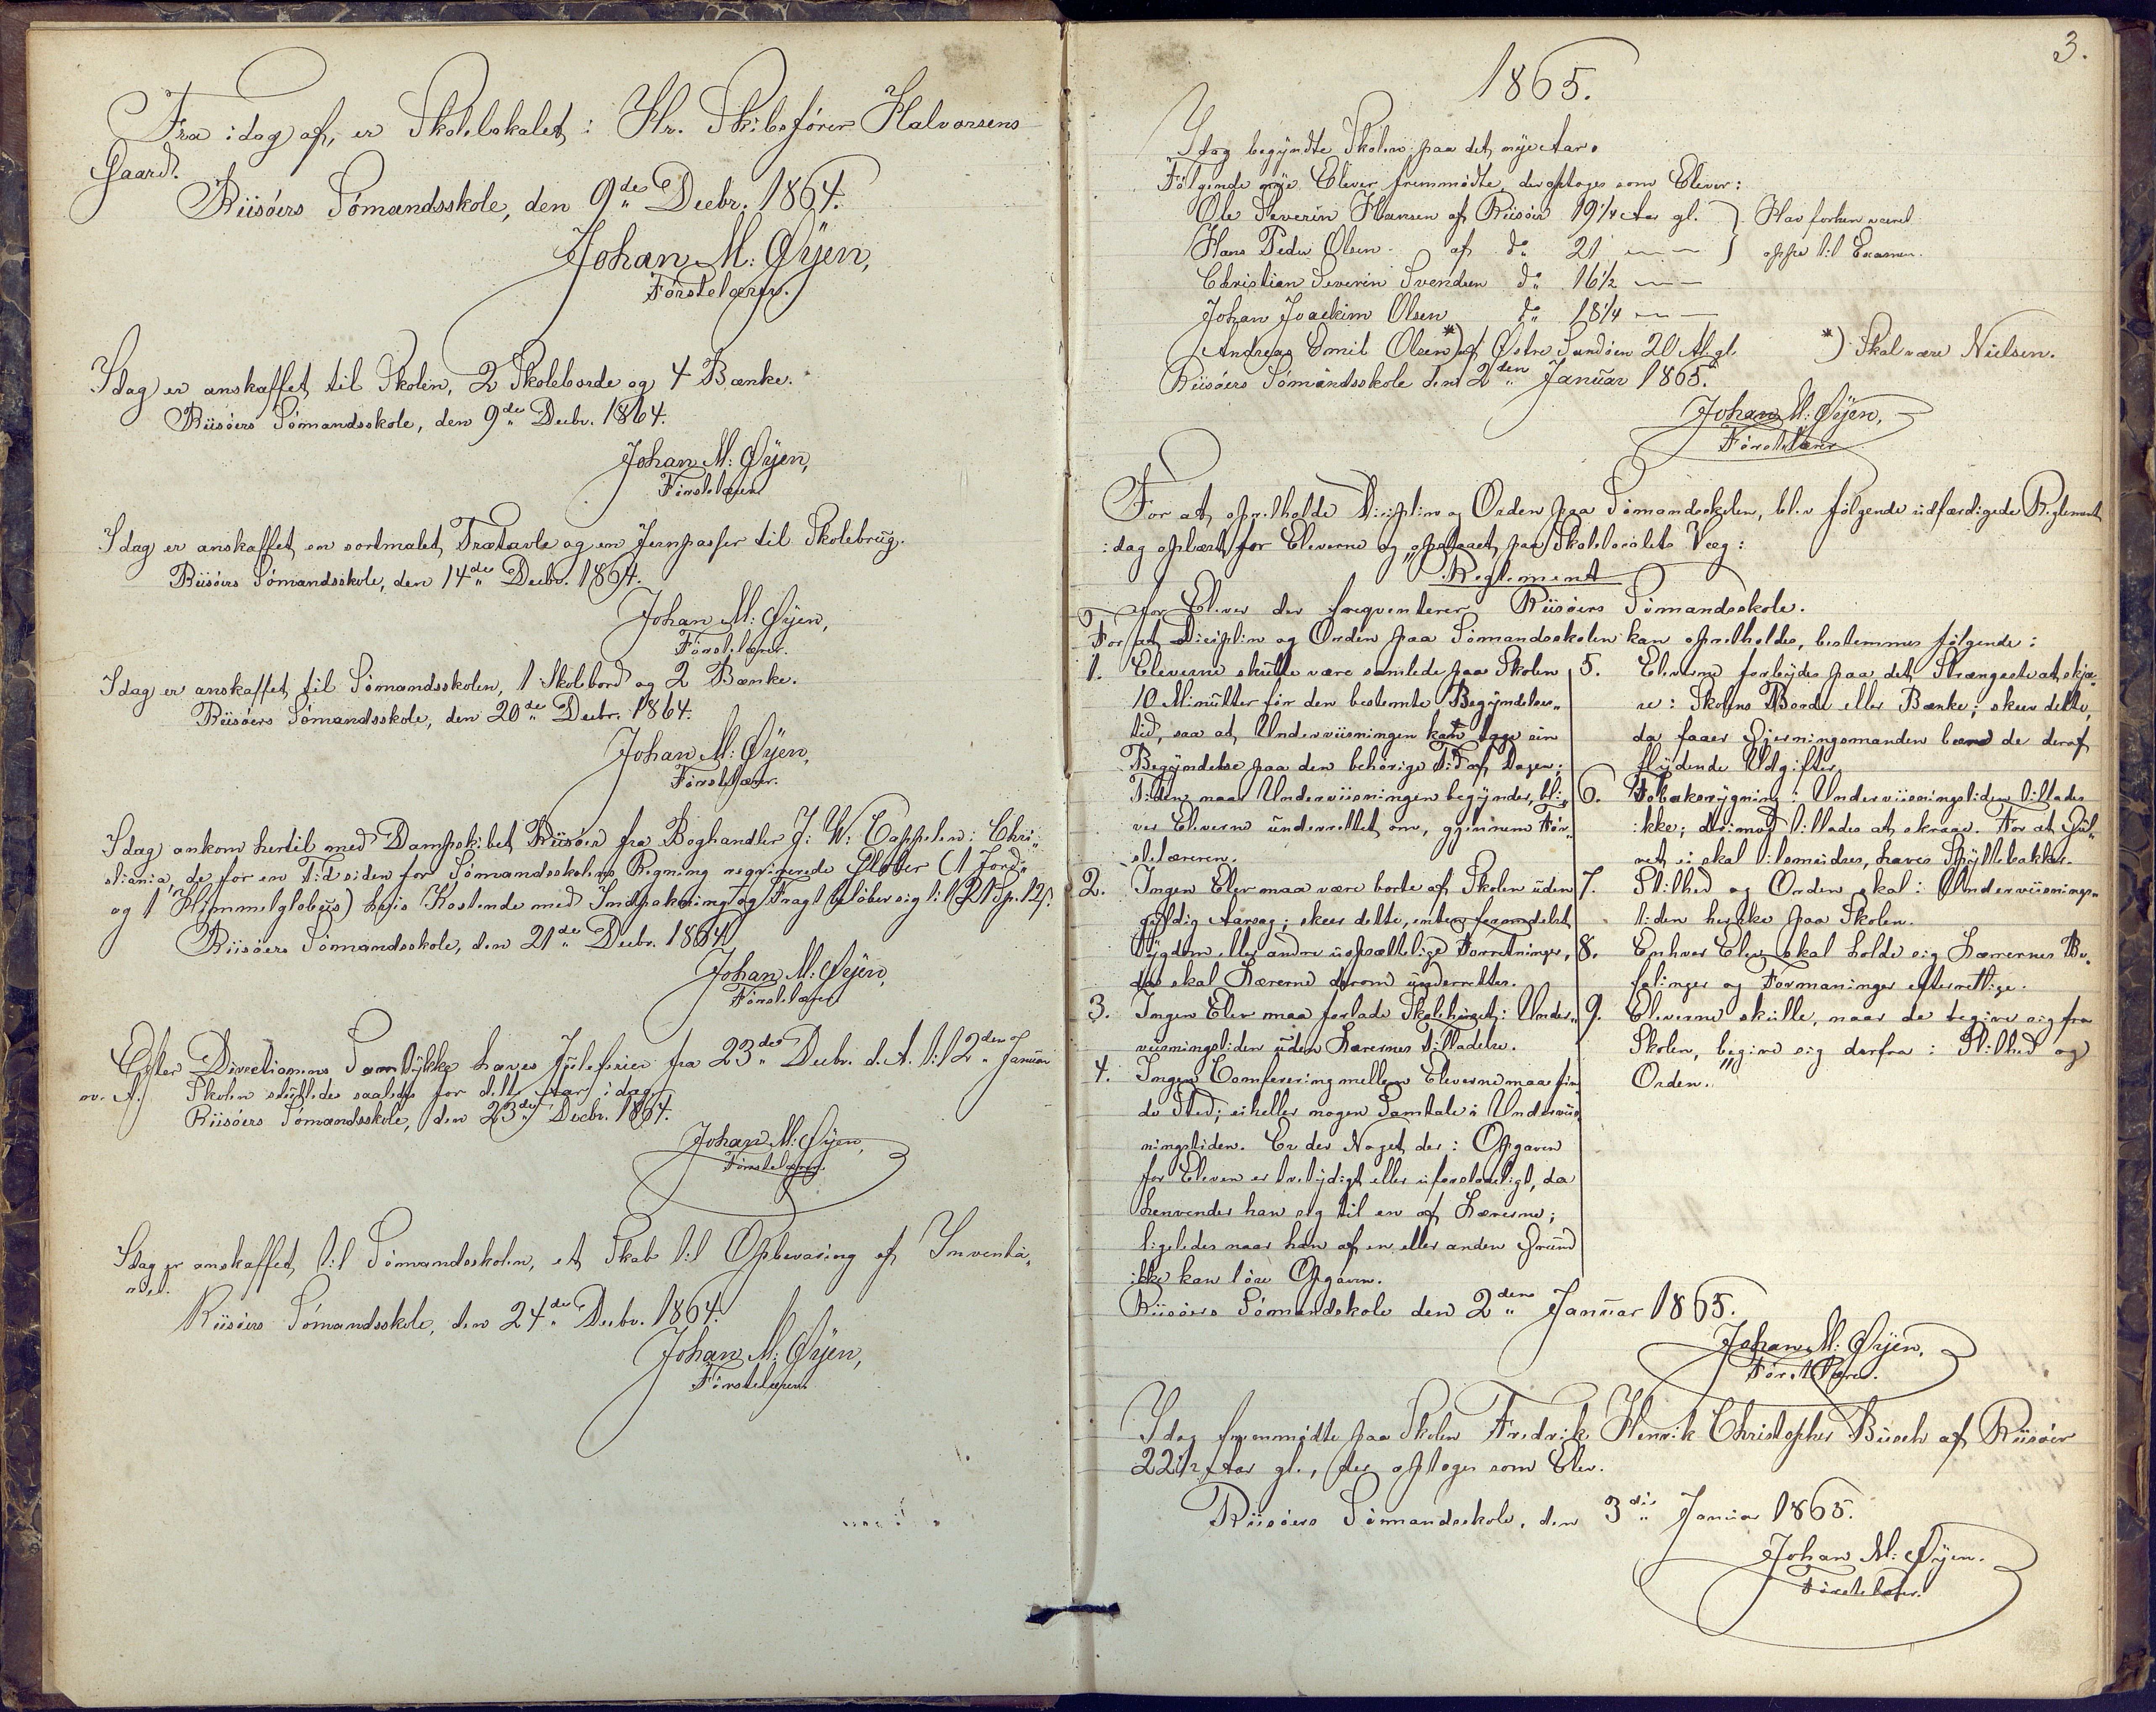 Fra idag af, er Skolelokalet i Hr. Skibsfører Halvorsens
Gaard.
Riisøers Sømandsskole, den 9de Decbr. 1864.
Johan M: Øyen,
Førstelærer.
Idag er anskaffet til Skolen, 2 Skoleborde og 4 Bænke.
Riisøers Sømandsskole, den 9de Decbr. 1864.
Johan M: Øyen,
Førstelærer.
Idag er anskaffet en sortmalet Trætavle og en Jernpasser til Skolebrug.
Riisøers Sømandsskole, den 14de Decbr. 1864.
Johan M: Øyen,
Førstelærer.
Idag er anskaffet til Sømandsskolen, 1 Skolebord og 2 Bænke.
Riisøers Sømandsskole, den 20de Decbr. 1864.
Johan M: Øyen,
Førstelærer.
Idag ankom hertil med Dampskibet Riisøer fra Boghandler J: W: Cappelen i Chri„
stiania, de for en Tid siden for Sømandsskolens Regning reqvirerede Glober (1 Jord„
og 1 Himmelglobus) hvis Kostende med Indpakning og Fragt beløber sig til 21 Sp. 12 ß.
Riisøers Sømandsskole, den 21de Decbr. 1864.
Johan M: Øyen,
Førstelærer
Efter Directionens Samtykke haves Juleferier fra 23de Decbr. d. A. til 2den Januar
n. A. Skolen sluttedes saaledes for dette Aar idag.
Riisøers Sømandsskole, den 23de Decbr. 1864.
Johan M: Øyen,
Førstelærer.
Idag er anskaffet til Sømandsskolen, et Skab til Opbevaring af Inventa„
riet.
Riisøers Sømandsskole, den 24de Decbr. 1864.
Johan M: Øyen,
Førstelærer.
3.
1865.
Idag begyndte Skolen paa det nye Aar.
Følgende nye Elever fremmødte, der optoges som Elever:
Ole Severin Hansen af Riisøer 19 1/4 Aar gl. } Har forhen været
Hans Peder Olsen af do 21 — — } oppe til Examen.
Christian Severin Svendsen do 16 1/2 — —
Johan Joackim Olsen do 18 1/4 — —
Andreas Emil Olsen *) af Østre Sandøen 20 A. gl. *) Skal være Nielsen.
Riisøers Sømandsskole den 2den Januar 1865.
Johan M: Øyen,
Førstelærer
For at opretholde Diciplin og Orden paa Sømandsskolen, blev følgende udfærdigede Reglement
idag oplæst for Eleverne og opslaaet paa Skolelocalets Væg:
„Reglement
for Elever der freqventerer Riisøers Sømandsskole.
For at Diciplin og Orden paa Sømandsskolen kan opretholdes, bestemmes følgende:
1. Eleverne skulle være samlede paa Skolen
10 Minutter før den bestemte Begyndelses„
tid, saa at Underviisningen kan tage sin
Begyndelse paa den behørige Tid af Dagen;
Tiden naar Underviisningen begynder, bli„
ver Eleverne underrettet om, gjennem Før„
stelæreren.
2. Ingen Elev maa være borte af Skolen uden
gyldig Aarsag; skeer dette, enten formedelst
Sygdom eller andre uopsættelige Forretninger,
da skal Lærerne derom underrettes.
3. Ingen Elev maa forlade Skolehuset i Under„
viisningstiden uden Lærernes Tilladelse.
4. Ingen Conferering mellem Eleverne maa fin„
de Sted; ei heller nogen Samtale i Underviis„
ningstiden. Er der Noget der i Opgaven
for Eleven er tvetydigt eller uforstaaeligt, da
henvender han sig til en af Lærerne;
ligeledes naar han af en eller anden Grund
ikke kan løse Opgaven.
5. Eleverne forbydes paa det Strængeste at skjæ„
re i Skolens Borde eller Bænke; skeer dette,
da faaer Gjerningsmanden bære de deraf
flydende Udgifter.
6. Tobaksrygning i Underviisningstiden tillades
ikke; derimod tillades at skraae. For at Gul„
vet ei skal tilsmudses, haves Spyttebakker.
7. Stilhed og Orden skal i Underviisnings„
tiden herske paa Skolen.
8. Enhver Elev skal holde sig Lærernes Be„
falinger og Formaninger efterrettelige.
9. Eleverne skulle, naar de begive sig fra
Skolen, begive sig derfra i Stilhed og
Orden.“
Riisøers Sømandsskole den 2den Januar 1865.
Johan M: Øyen,
Førstelærer.
Idag fremmødte paa Skolen Fredrik Henrik Christopher Busch af Riisøer
22 1/2 Aar gl., der optoges som Elev.
Riisøers Sømandsskole, den 3die Januar 1865.
Johan M: Øyen.
Førstelærer.